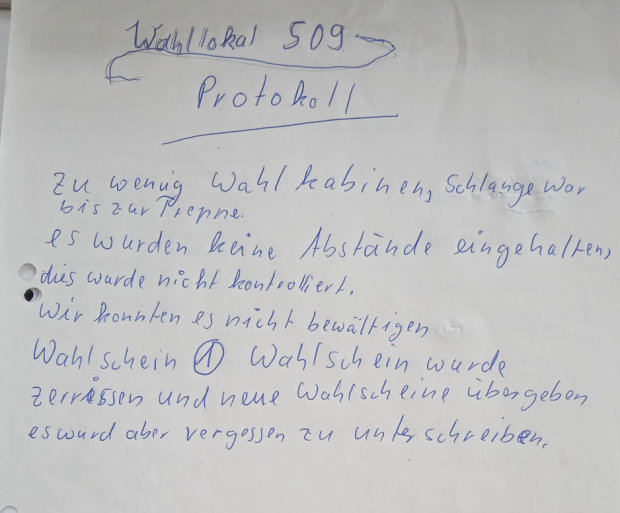 Wahllokal 509
Protokoll
Zu wenig Wahlkabinen, Schlange war
bis zur Treppe.
es wurden keine Abstände eingehalten,
dies wurde nicht kontrolliert.
Wir konnten es nicht bewältigen
Wahlschein ① Wahlschein wurde
zerrissen und neue Wahlscheine übergeben
es wurd aber vergessen zu unterschreiben.